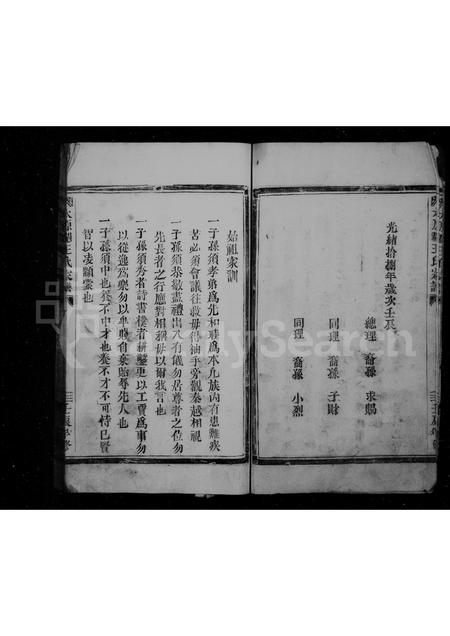 光緒拾捌年歲次壬辰
總理 裔孫 求賜
同理 裔孫 子財
同理 裔孫 小烈
始祖家訓
一子孫須孝弟為先和睦為本九族內有患難疾
苦必須會議往救毋得袖手旁觀秦越相視
一子孫須恭敬盡禮出入有儀勿居尊者之位勿
先長者之行應對相稱毋以爾我言也
一子孫須秀者詩書樸者耕鑿更以工賈為事勿
以從逸為樂勿以卑賤自棄貽辱先人也
一子孫須中也養不中才也養不才不可恃己賢
智以凌顓蒙也
太原
王氏宗譜
壬辰重修
MySearch